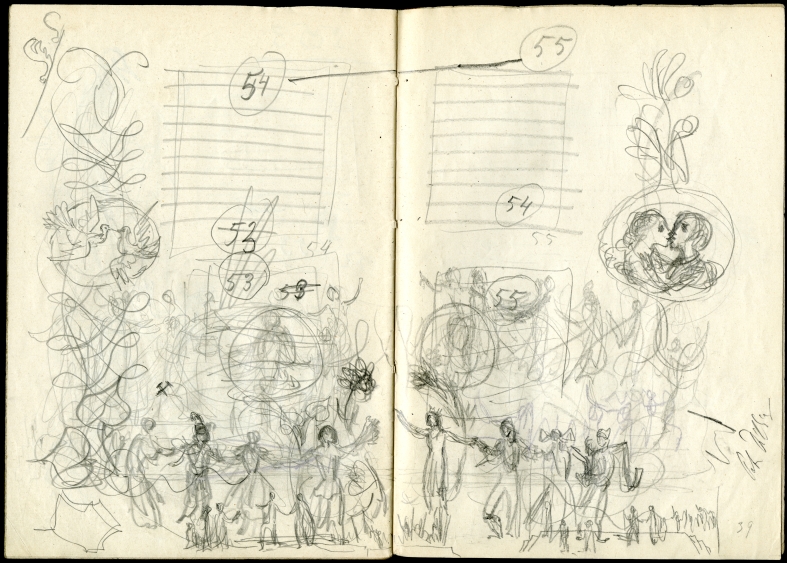 54
53
53
54
53
55
54
55
55
39